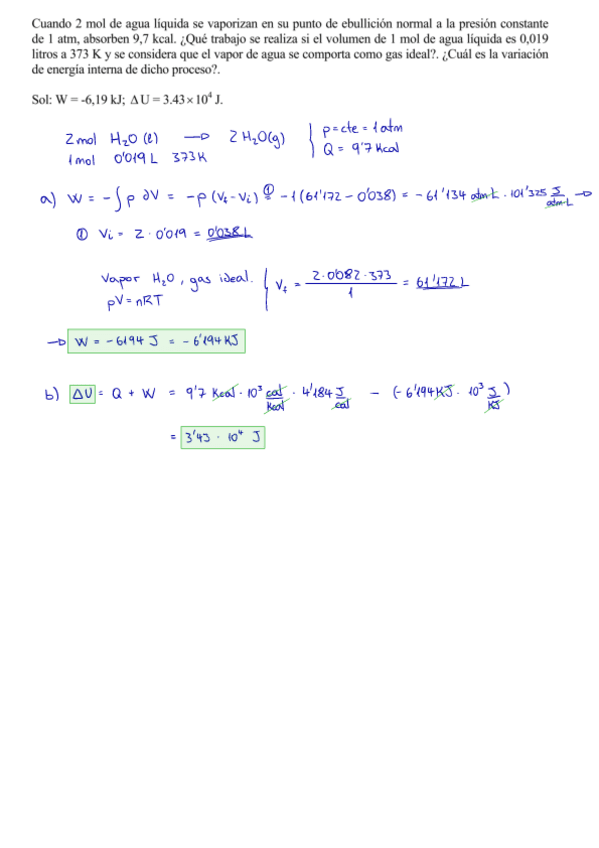 Cuando 2 mol de agua líquida se vaporizan en su punto de ebullición normal a la presión constante
de 1 atm, absorben 9,7 kcal. ¿Qué trabajo se realiza si el volumen de 1 mol de agua líquida es 0,019
litros a 373 K y se considera que el vapor de agua se comporta como gas ideal?. ¿Cuál es la variación
de energía interna de dicho proceso?.
Sol: W = -6,19 kJ; ΔU = 3.43 × 10⁴ J.
2 mol H₂O (l) → 2 H₂O(g) { p = cte = 1 atm
1 mol 0'019 L 373 K { Q = 9'7 Kcal
a) W = - ∫ p ∂V = -p (Vf - Vi) ①= -1 (61'172 - 0'038) = -61'134 atm·L · 101'325 J/atm·L →
① Vi = 2 · 0'019 = 0'038 L
Vapor H₂O, gas ideal. { Vf = 2·0'082·373 / 1 = 61'172 L
pV = nRT
→ W = - 6194 J = - 6'194 KJ
b) ΔU = Q + W = 9'7 Kcal · 10³ cal/Kcal · 4'184 J/cal - (-6'194 KJ · 10³ J/KJ)
= 3'43 · 10⁴ J